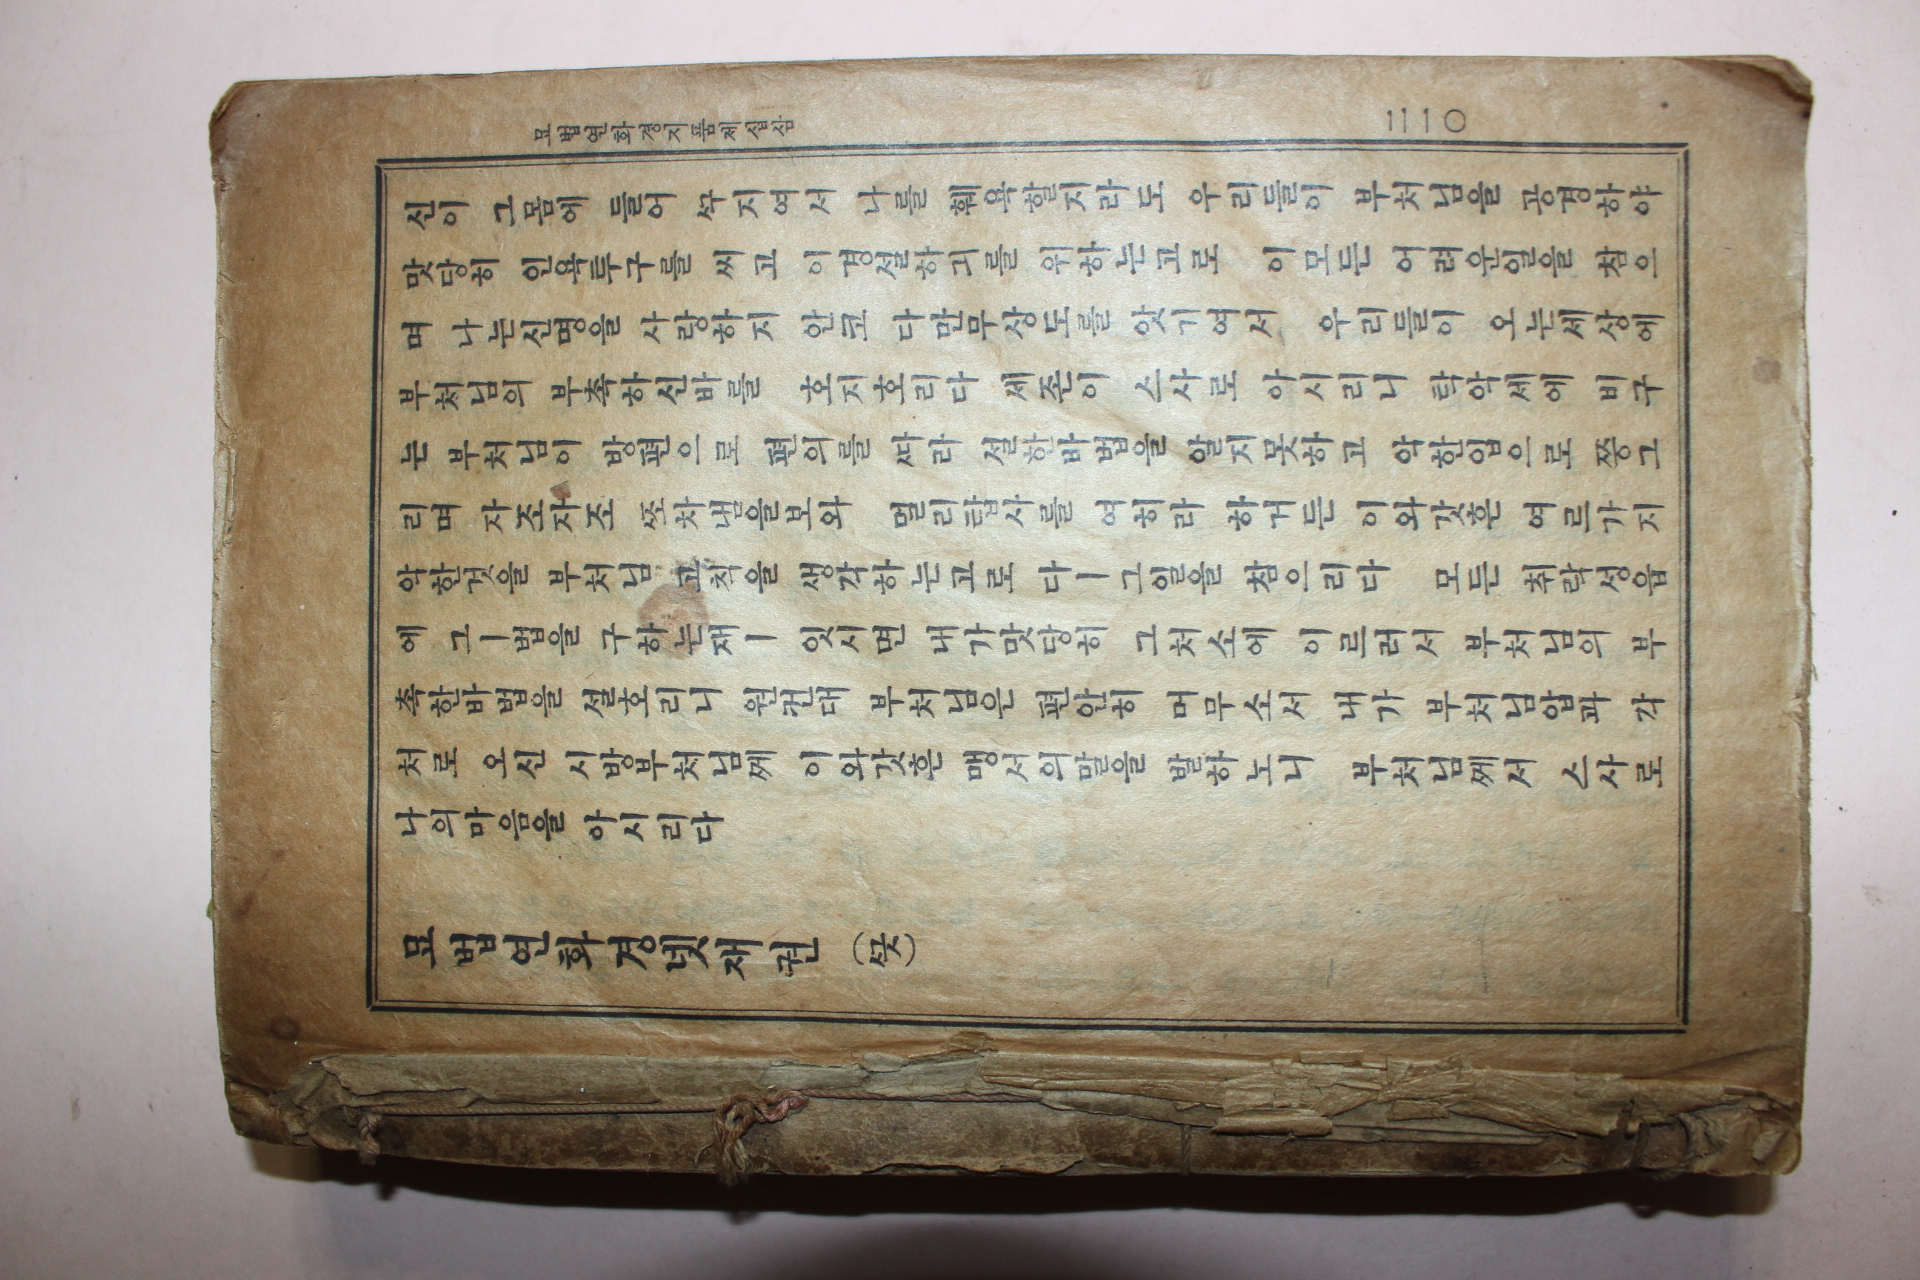 묘법연화경지품제십삼
二一〇
신이 그몸에 들어 ᄭᅮ지여서 나를 훼욕할지라도 우리들이 부처님을 공경하야
맛당히 인욕투구를 씨고 이경설하긔를 위하는고로 이모든 어려운일을 참으
며 나는신명을 사랑하지 안코 다만무상도를 앗기여서 우리들이 오는세상에
부처님의 부촉하신바를 호지호리다 세존이 스사로 아시리니 탁악세에 비구
는 부처님이 방편으로 편의를 ᄯᅡ라 설한바법을 알지못하고 악한입으로 ᄶᅳᆼ그
리며 자조자조 ᄶᅩ차냄을보와 멀리탑사를 여히라 하거든 이와갓흔 여르가지
악한것을 부처님 고칙을 생각하는고로 다ㅣ그일을 참으리다 모든 취락성읍
에 그ㅣ법을 구하는재ㅣ 잇시면 내가맛당히 그처소에 이르러서 부처님의 부
촉한바법을 설호리니 원컨대 부처님은 편안히 머무소서 내가 부처님압과 각
처로 오신 시방부처님ᄭᅦ 이와갓흔 맹서의말을 발하노니 부처님ᄭᅦ서 스사로
나의마음을 아시리다
묘법연화경넷재권 (ᄭᅳᆺ)